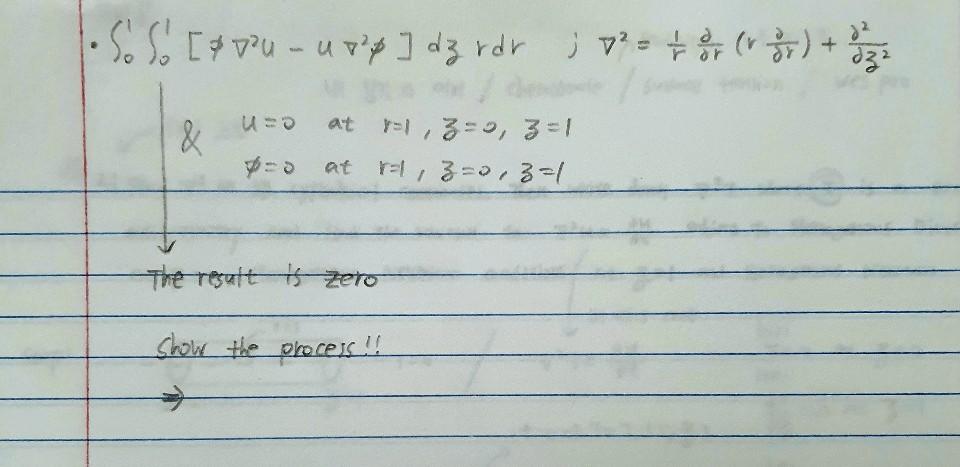 • ∫₀¹ ∫₀¹ [ φ ∇²u − u ∇²φ ] dz rdr ; ∇² = 1/r ∂/∂r (r ∂/∂r) + ∂²/∂z²
& u=0 at r=1, z=0, z=1
φ=0 at r=1, z=0, z=1
The result is zero
Show the process!!
⇒